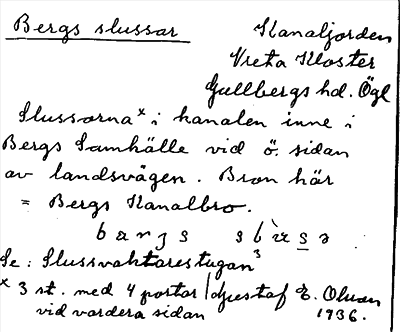 Bergs slussar
Kanaljorden
Vreta Kloster
Gullbergs hd. Ögl
Slussarna x i kanalen inne i
Bergs Samhälle vid ö. sidan
av landsvägen. Bron här
= Bergs Kanalbro.
Se: Slussvaktarestugan
x 3 st. med 4 portar
vid vardera sidan
Gustaf E. Olsson
1936.